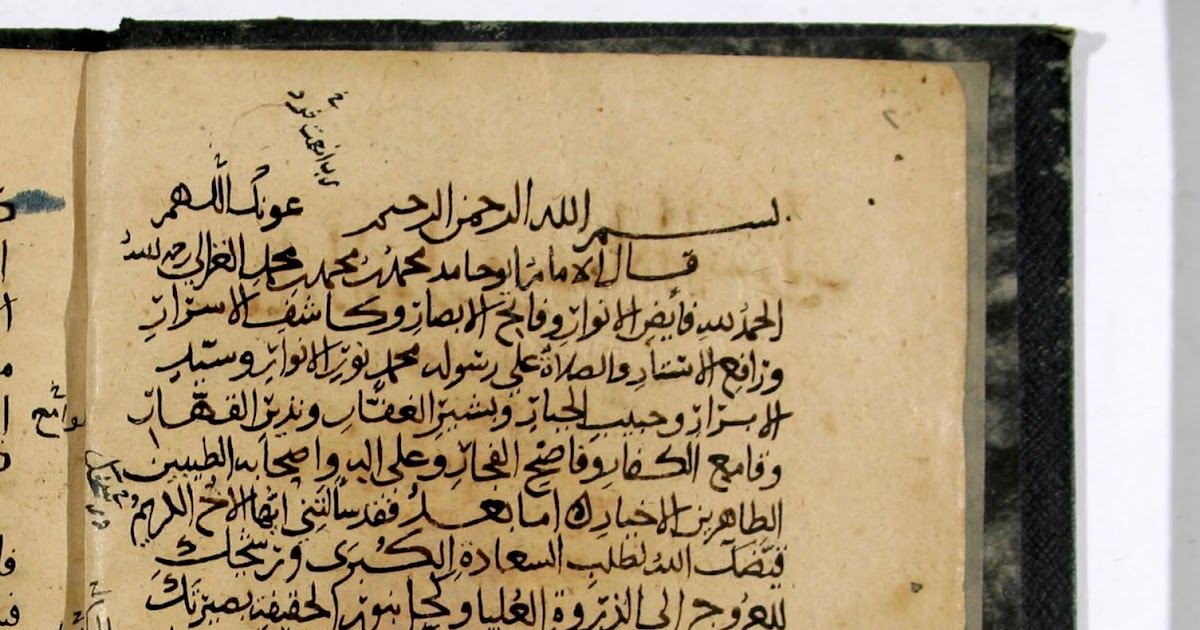 رب انعمت فزد
بسم الله الرحمن الرحيم عونك اللهم
قال الامام ابو حامد محمد بن محمد بن محمد الغزالي رحمه الله
الحمد لله فائض الانوار وفاتح الابصار وكاشف الاسرار
ورافع الاستار والصلاة على رسوله محمد نور الانوار وسيد
الابرار وحبيب الجبار وبشير الغفار ونذير القهار
وقامع الكفار وفاضح الفجار وعلى اله واصحابه الطيبين
الطاهرين الاخيار اما بعد فقد سألتني ايها الاخ الكريم
قيضك الله لطلب السعادة الكبرى ورشحك
للعروج الى الذروة العليا وكحل بنور الحقيقة بصيرتك